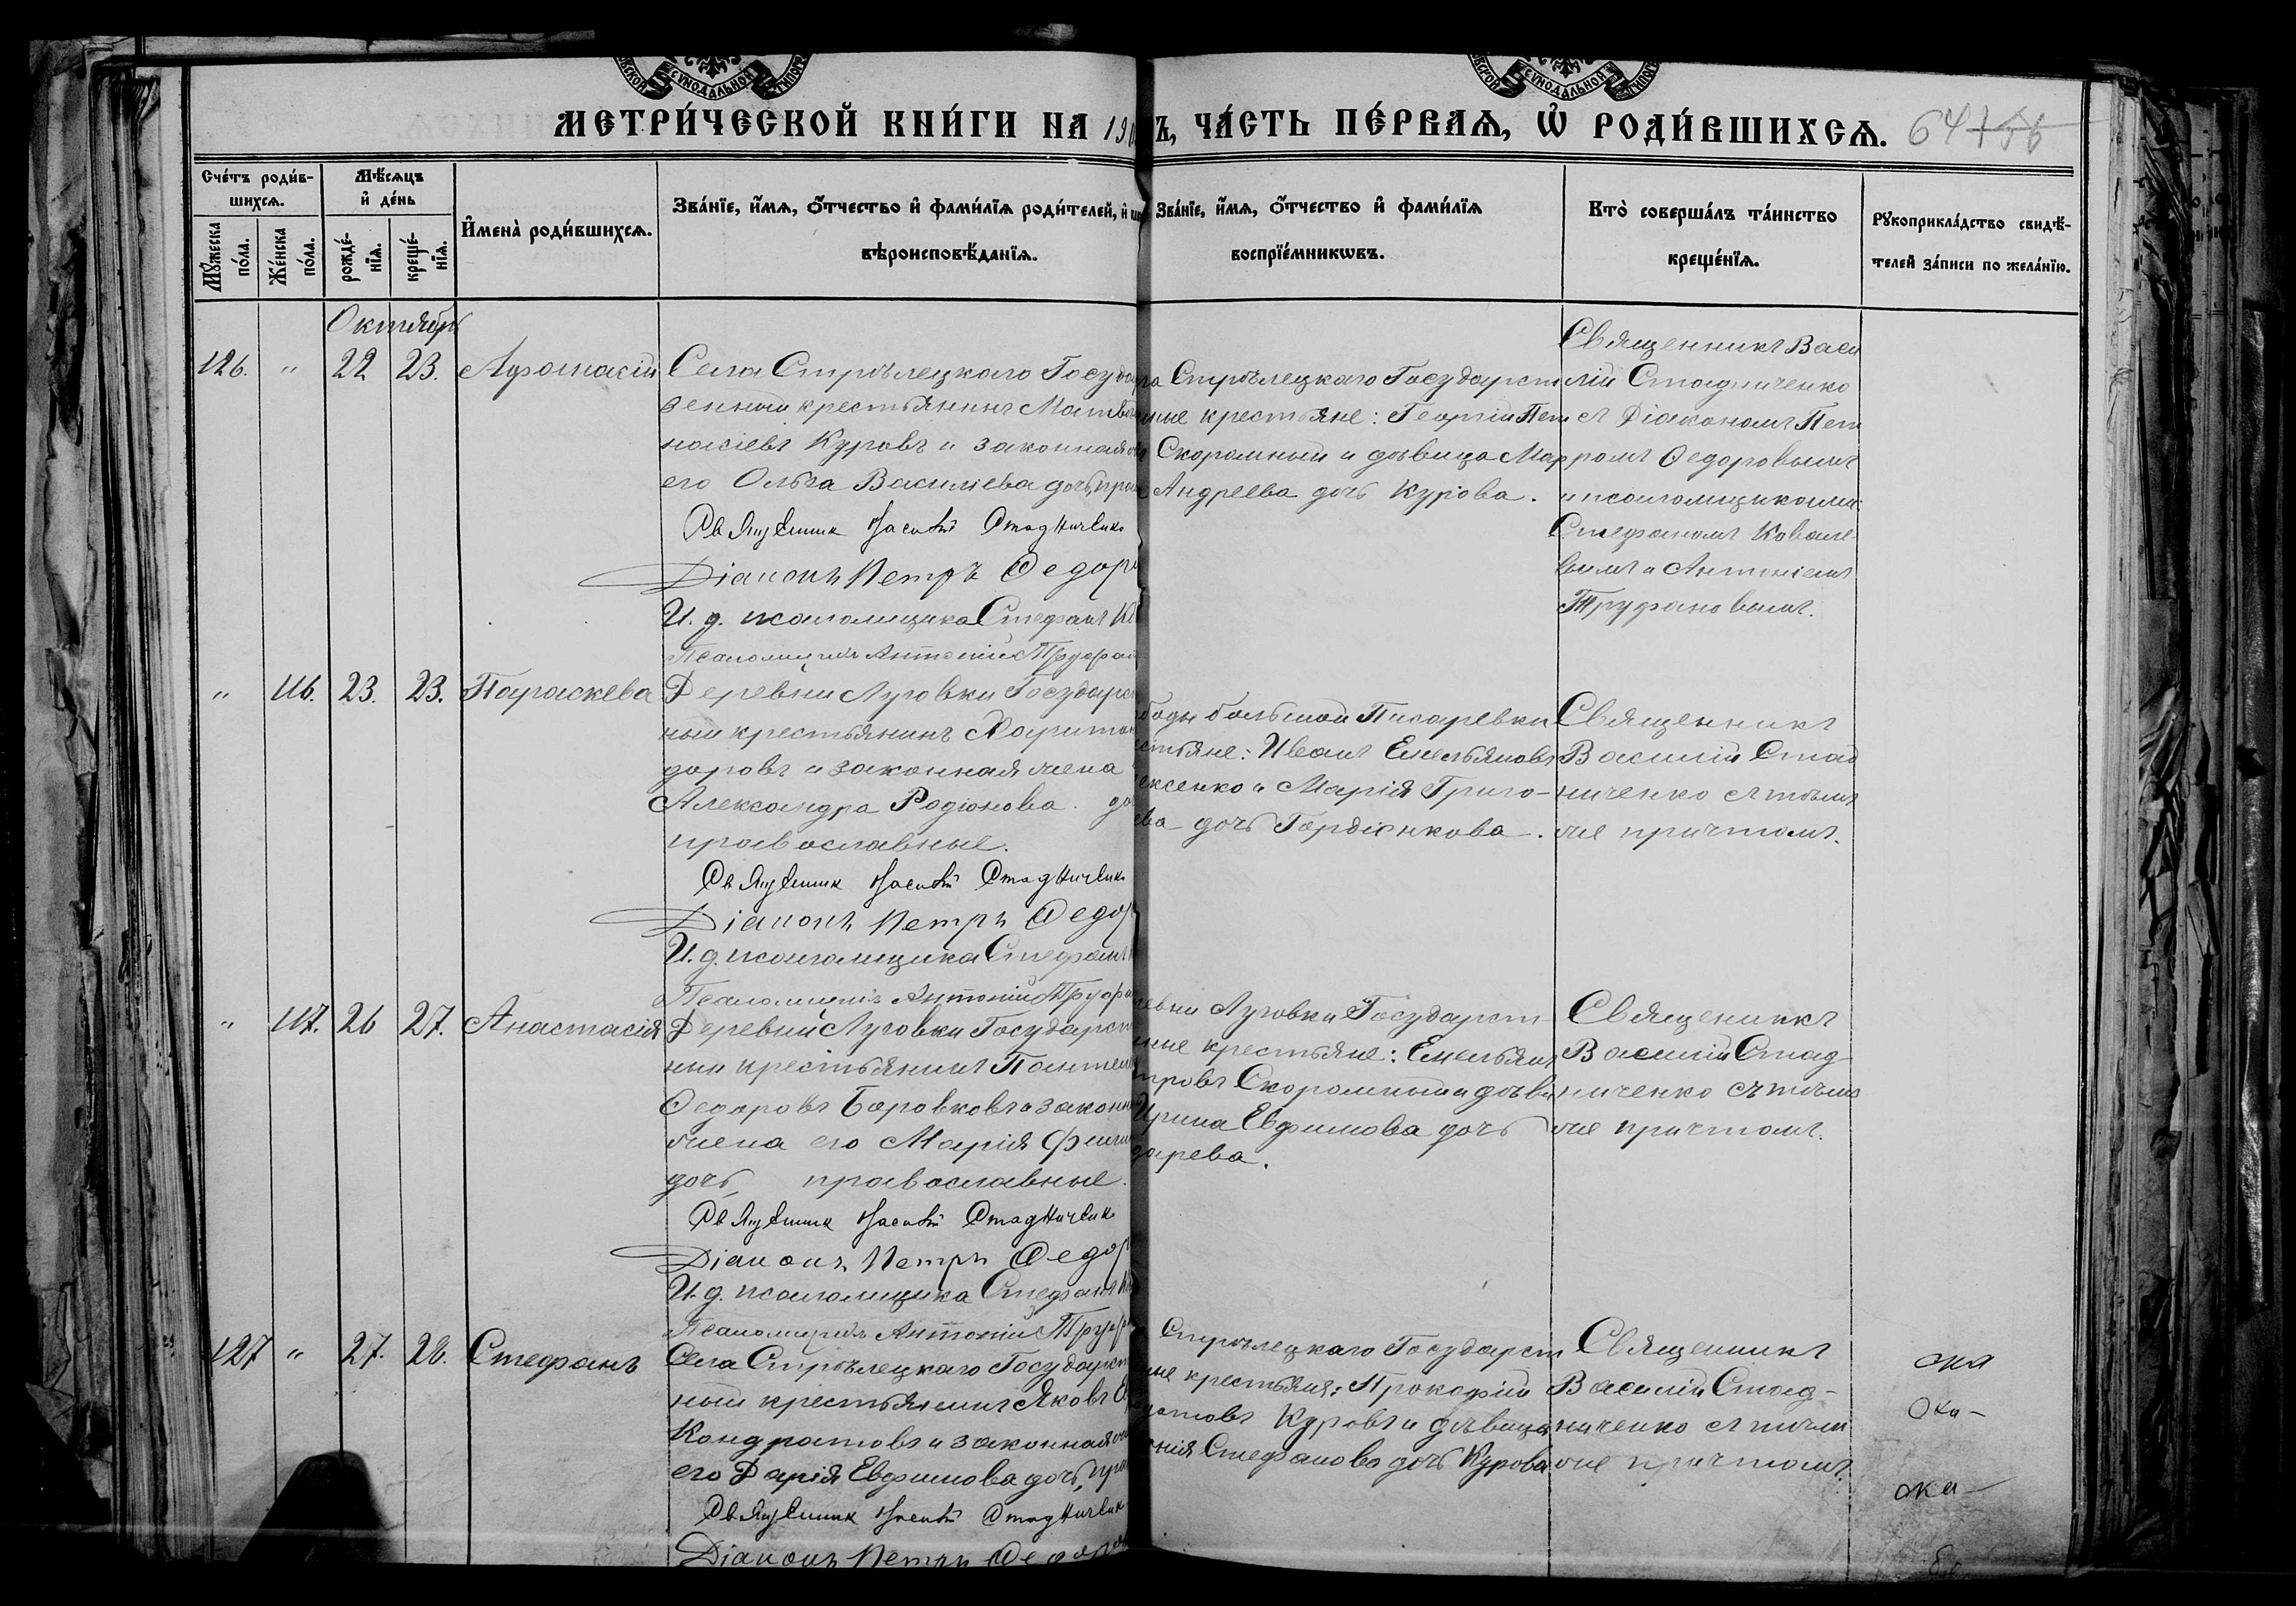 МЕТРИ́ЧЕСКОЙ КНИ́ГИ НА 19
Ъ, ЧА́СТЬ ПЕ́РВАЯ, Ѡ РОДИ́ВШИХСЯ.
64
Сче́тъ роди́в-
шихся.
Мѣ́сяцъ
и де́нь
Му́жеска
по́ла.
Же́нска
по́ла.
рожде́-
нїя.
креще́-
нїя.
Имена̀ роди́вшихся.
Зва́нїе, и́мя, о́тчество и фами́лїя роди́телей, и
вѣроисповѣ́данїя.
Зва́нїе, и́мя, о́тчество и фами́лїя
воспрїе́мниковъ.
Кто̀ соверша́лъ та́инство
креще́нїя.
Рꙋкоприкла́дство свидѣ́-
телей за́писи по жела́нїю.
Октябрь
126. " 22 23. Афанасій
Села Стрѣлецкаго Государ
венный крестьянинъ Матвѣ
насіевъ Куровъ и законная
его Ольга Василіева дочь, пра
Священник Василій Стадниченко
Діаконъ Петръ Ѳедор
И. д. псаломщика Стефанъ К
Псаломщикъ Антоній Труфа
Стрѣлецкаго Государст
ные крестьяне: Георгій Пет
Скоромный и дѣвица Мар
Андреева дочь Курова.
Священникъ Васи
лій Стадниченко
съ Діакономъ Пет
ромъ Ѳедоровымъ
и псаломщиками:
Стефаномъ Ковале
вымъ и Антоніемъ
Труфановымъ.
" 116. 23. 23. Параскева
Деревни Луговки Государст
ный крестьянинъ Харитон
доровъ и законная жена
Александра Родіонова до
православные.
Священник Василій Стадниченко
Діаконъ Петръ Ѳедор
И. д. псаломщика Стефанъ
Псаломщикъ Антоній Труфа
боды большой Писаревки
стьяне: Иванъ Емельяновъ
ексенко и Марія Григо-
ева дочь Гордіенкова.
Священникъ
Василій Стад
ниченко съ тѣмъ
же причтомъ.
" 117. 26 27. Анастасія
Деревни Луговки Государст
ный крестьянинъ Пантел
Ѳедоровъ Боровковъ и законн
жена его Марія Фили
дочь, православные.
Священник Василій Стадниченко
Діаконъ Петръ Ѳедор
И. д. псаломщика Стефанъ К
Псаломщикъ Антоній Труф
евни Луговки Государст
нные крестьяне: Емельянъ
тровъ Скоромный и дѣви
Ирина Евфимова дочь
дарева.
Священникъ
Василій Стад-
ниченко съ тѣмъ
же причтомъ.
127 " 27. 28. Стефанъ
Села Стрѣлецкаго Государст
ный крестьянинъ Яковъ
Кондратовъ и законная
его Дарія Евфимова дочь, пра
Священник Василій Стадниченко
Діаконъ Петръ Ѳедоро
Стрѣлецкаго Государст
ные крестьяне: Прокофій
Куровъ и дѣвица
Стефанова дочь Курова
Священникъ
Василій Стад-
ниченко съ тѣмъ
же причтомъ.